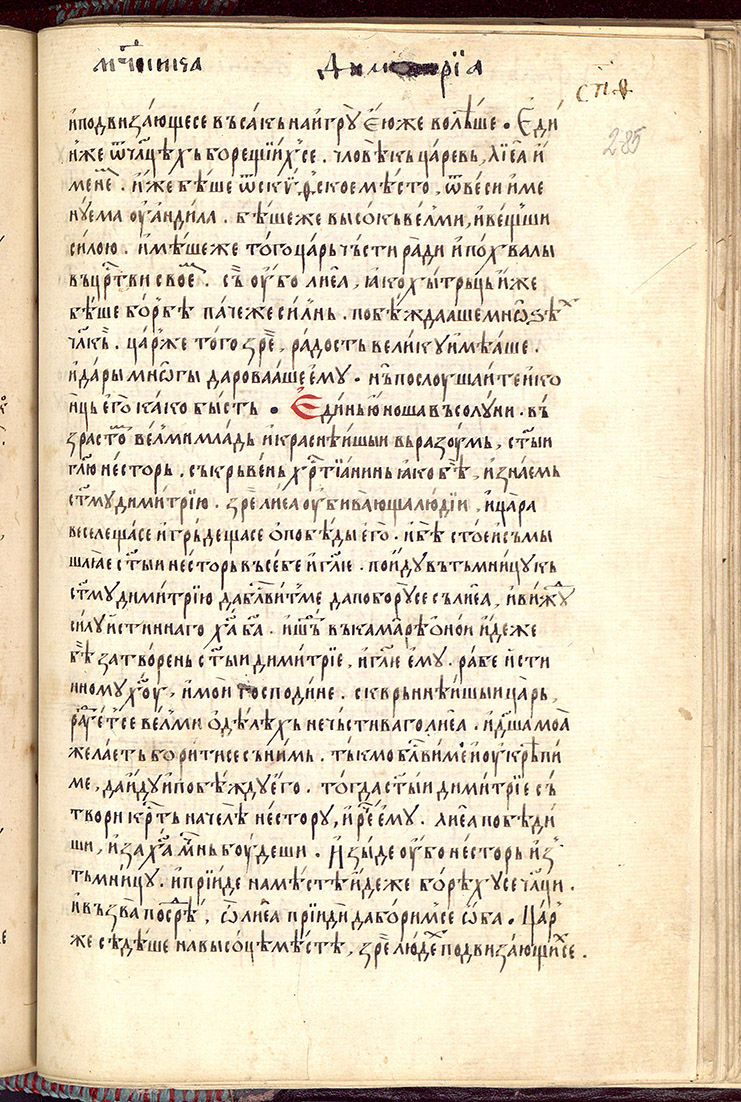 мч҃нника димитрїа
сп҃ѳ
285
и҆подвиза́ющесе въса́къ наи҆грꙋ̀ є҆ю́же волѣ́ше · Єди́
и҆же ѿч҃лцѣхъ бореꙋ́щїи҆хсе · члов́ѣкъ ца́ревь, лїе́а и҆
мене · и҆́же бѣ́ше ѿскѵ́ѳскoе мѣ́сто, ѿве́си и҆ме
нꙋ́ема оу҆а́ндила · бѣ́шеже высо́къ ве́лми, и҆ве́щши
си́лою · и҆мѣ́шеже то́гоца́рь чъ́сти ра́ди и҆похвалы̀
въцр҃тви своѐ · съ̀ оу҆́бо лїе́а, ꙗ҆́кохы́трьць и҆́же
бѣ́ше бо́рбѣ па́чеже си́лнь · побѣ́ждааше мнѡ́зѣх
чл҃кь · ца́рже то́го зрѐ, ра́дость вели́кꙋ и҆мѣ́аше ·
и҆да́ры мнѡ́гы дарова́аше е҆мꙋ̀ · нь̀ послоу́шаите и҆ ко
не́ць е҆го̀ ка́ко бы́сть · Є҆ди́нь ю҆́ноша въсолꙋ́ни · въ́
зрастѡ̀ ве́лми мла́дь и҆красне́ишыи въра́зоумь, ст҃ыи
гл҃ю не́сторь · съкръве́нь хр҃тїа́нинь ꙗ҆́ко бѣ̀, и҆зна́емь
ст҃мꙋ дими́трїю · зрѐ лїе́а оу҆бива́юща лю́дїи, и҆ца́ра
веселе́щасе и҆грьде́щасе ѻ҆побѣ́ды е҆го̀ · и҆бѣ̀ стое́и съмы
шлꙗ́е ст҃ыи не́сторь въсе́бе и҆гл҃е · пои́дꙋ въть́мницꙋ къ
ст҃мꙋ дими́трїю да бл҃ви́тме да побо́рꙋсе слїе́а, и҆ви́ждꙋ
си́лꙋ и҆́стиннаго х҃а б҃а · и҆шь́ въкама́рѣ ѻ҆́нои и҆́деже
бѣ̀ затво́рень ст҃ыи дими́трїе, и҆гл҃е е҆мꙋ̀ · ра́бе и҆́сти
нномꙋ х҃оу, и҆мо́и господи́не · скврьнне́ишыи ца́рь,
ра́дꙋетсе ве́лми ѻ҆дѣ́лѣхъ нечъ́стиваго лїе́а · и҆дш҃а моа̀
жела́еть бори́тисе сни́мь · тъ́кмо бл҃ви ме и҆оу҆крѣ́пи
ме, да и҆́дꙋ и҆побѣ́ждꙋ е҆го̀ · тогда̀ ст҃ыи дими́трїе съ́
твори кр҃ть наче́лѣ не́сторꙋ, и҆рѐ е҆мꙋ̀ · лїе́а побѣ́ди
ши, и҆за х҃а мч҃нь бꙋ́деши · И҆зы́де оу҆́бо не́сторь и҆з
тьмни́цꙋ · и҆прїи́де намѣ́стѣ и҆́деже бо́рѣхꙋсе чл҃ци ·
и҆възва посре́дѣ, ѽ лїе́а прїиди да бори́мсе ѻ҆́ба · Ца́р
же сѣдѣ́ше навысо́цѣмѣстѣ, зрѐ люде́х подвиза́ющихсе ·